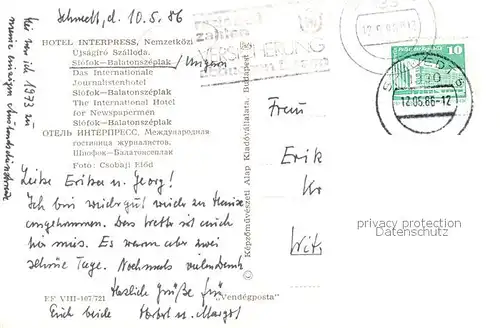 Schwedt, d. 10.5.86
HOTEL INTERPRESS, Nemzetközi
Újságíró Szálloda.
Siófok–Balatonszéplak / Ungarn
Das Internationale
Journalistenhotel
Siófok–Balatonszéplak
The International Hotel
for Newspapermen
Siófok–Balatonszéplak
ОТЕЛЬ ИНТЕРПРЕСС, Международная
гостиница журналистов.
Шиофок–Балатонсеплак
Foto: Csobaji Előd
Liebe Erika u. Georg!
Ich bin wieder gut zu Hause
angekommen. Das wollte ich euch
Es waren aber zwei
schöne Tage. Nochmals vielen Dank
Herzliche Grüße für
Euch beide Margot
EF VIII-107/721
„Vendégposta"
© Képzőművészeti Alap Kiadóvállalata, Budapest
Hier war ich 1973 zu
meiner einzigen Auslandsreise
zahlen
VERSICHERUNG
12.05.86-12
10
SCHWEDT
1330
12.05.86-12
Frau
Erik
Kr
Wit
privacy protection
Datenschutz